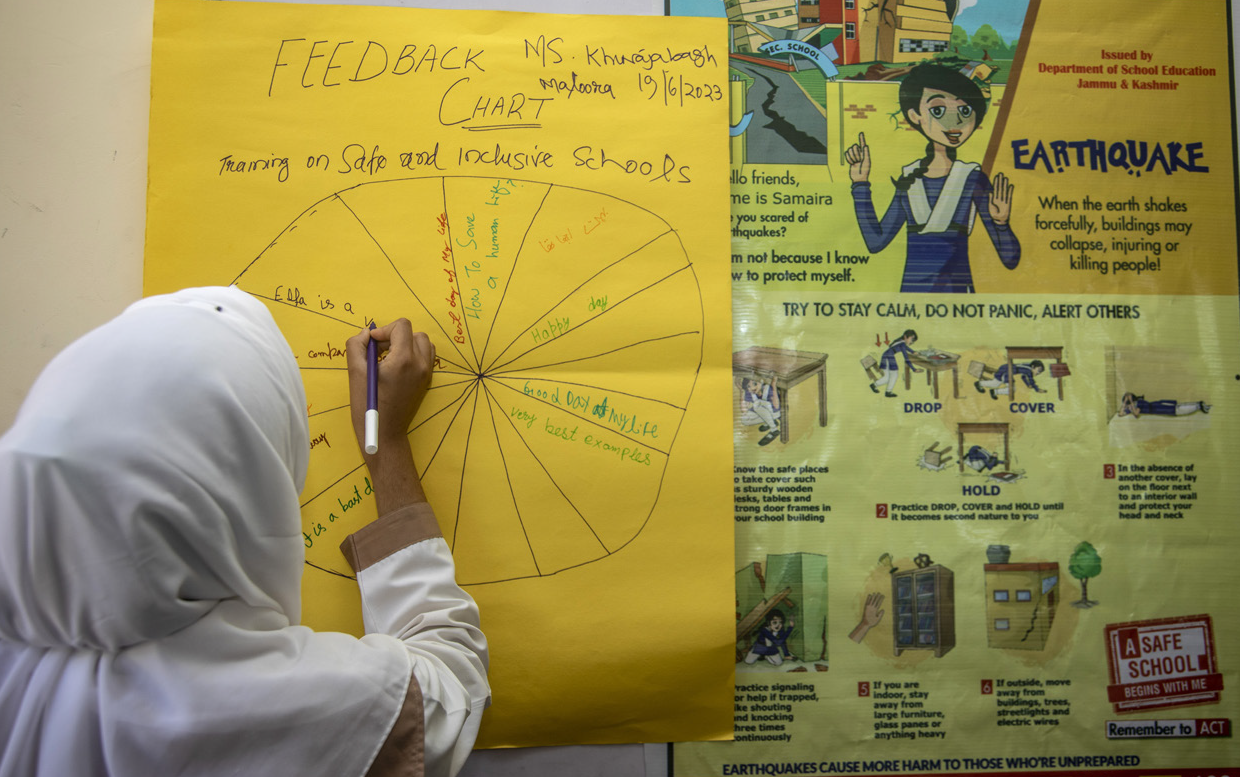 FEEDBACK
CHART
MS. Khwajabagh
19/6/2023
Training on Safe and Inclusive Schools
Best day of My life
How To Save
a human life?
Happy day
Good DAY of My life
very best examples
is a
SEC. SCHOOL
Issued by
Department of School Education
Jammu & Kashmir
EARTHQUAKE
When the earth shakes
forcefully, buildings may
collapse, injuring or
killing people!
llo friends,
me is Samaira
you scared of
thquakes?
m not because I know
w to protect myself.
TRY TO STAY CALM, DO NOT PANIC, ALERT OTHERS
DROP
COVER
HOLD
Know the safe places
to take cover such
as sturdy wooden
desks, tables and
strong door frames in
your school building
2 Practice DROP, COVER and HOLD until
it becomes second nature to you
3 In the absence of
another cover, lay
on the floor next
to an interior wall
and protect your
head and neck
Practice signaling
or help if trapped,
ike shouting
and knocking
three times
continuously
5 If you are
indoor, stay
away from
large furniture,
glass panes or
anything heavy
6 If outside, move
away from
buildings, trees,
streetlights and
electric wires
A SAFE
SCHOOL
BEGINS WITH ME
Remember to ACT
EARTHQUAKES CAUSE MORE HARM TO THOSE WHO'RE UNPREPARED